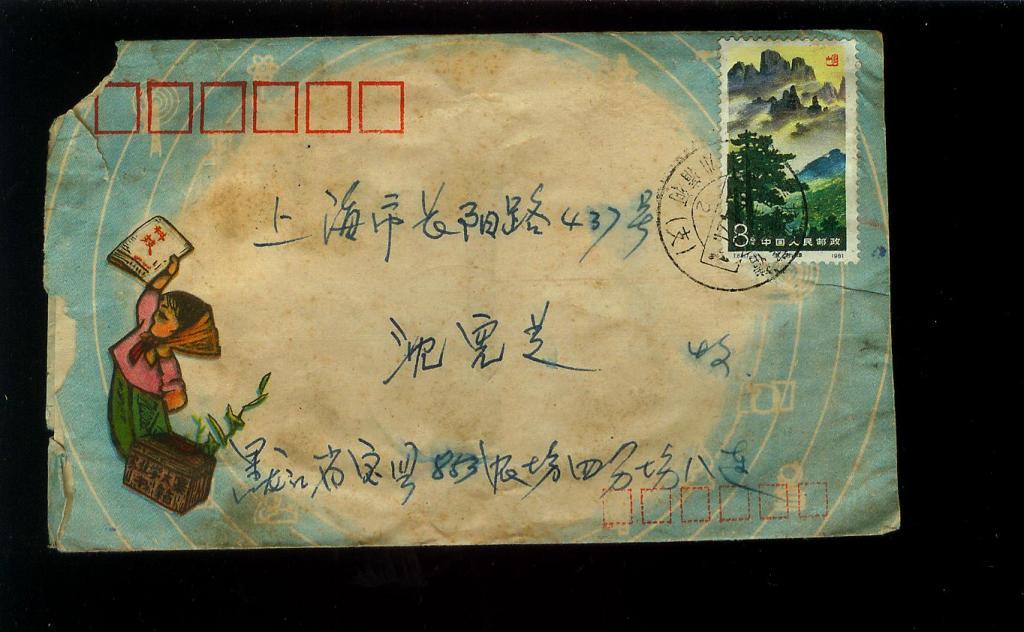 上海市长阳路437号
沈宪芝 收
黑龙江省宝县853农场四分场八连
科技
8分 中国人民邮政
1981